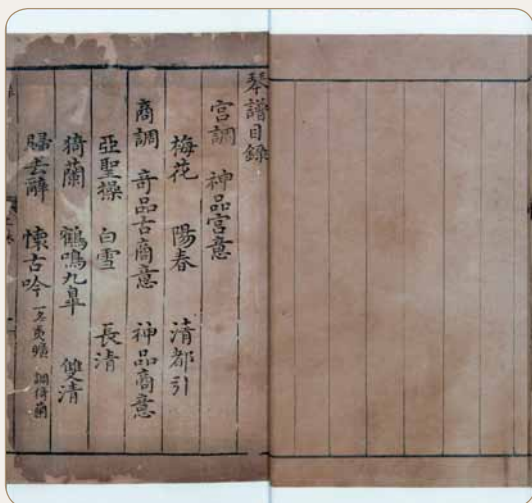 琴譜目錄
宮調 神品宮意
梅花 陽春 清都引
商調 奇品古商意 神品商意
亞聖操 白雪 長清
猗蘭 鶴鳴九皋 雙清
歸去辭 懷古吟 一名 調猗蘭